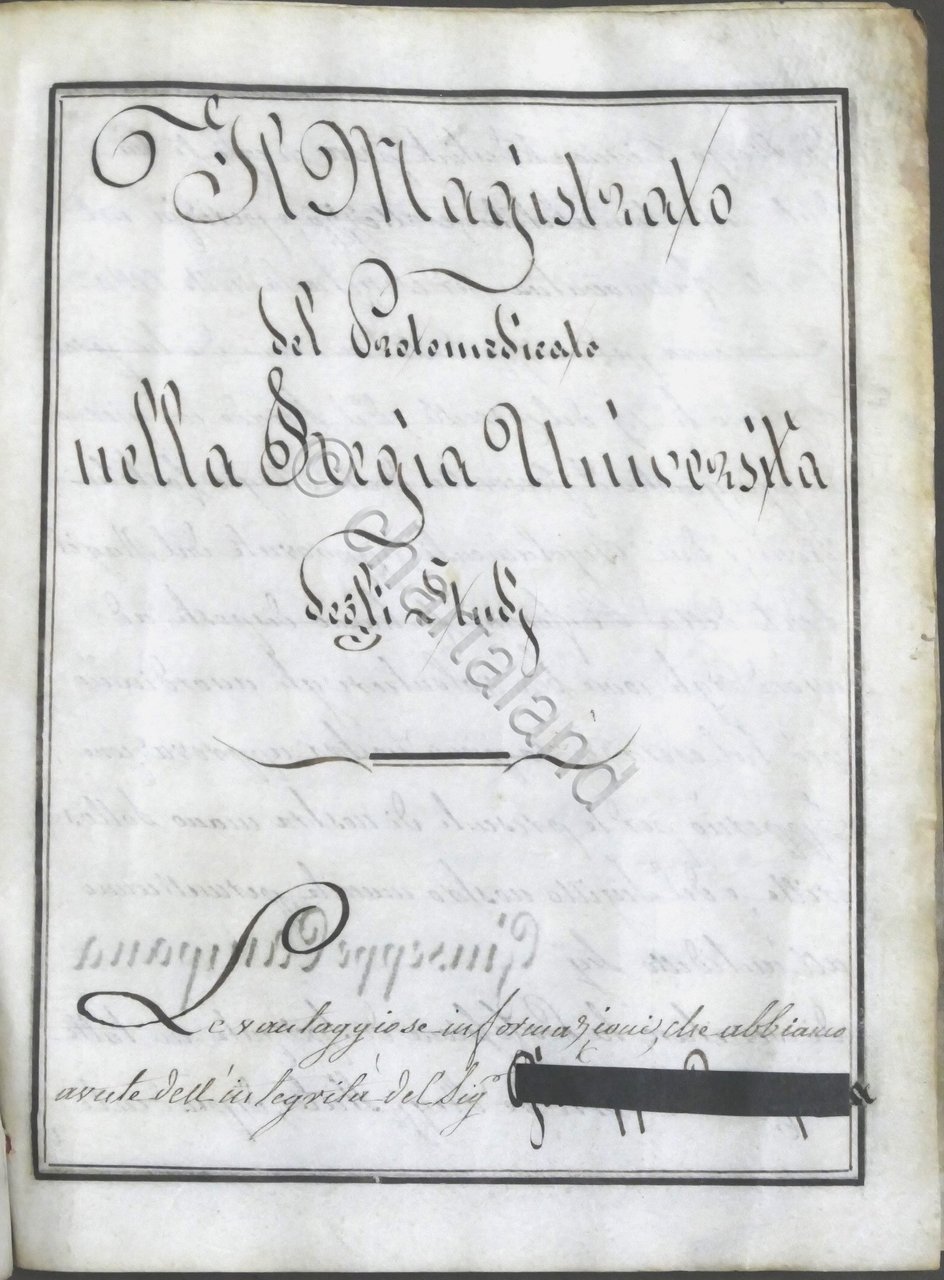 Il Magistrato
del Protomedicato
nella Regia Università
degli Studj
Le vantaggiose informazioni, che abbiamo
avute dell'integrità del Sig.º
© chartaland